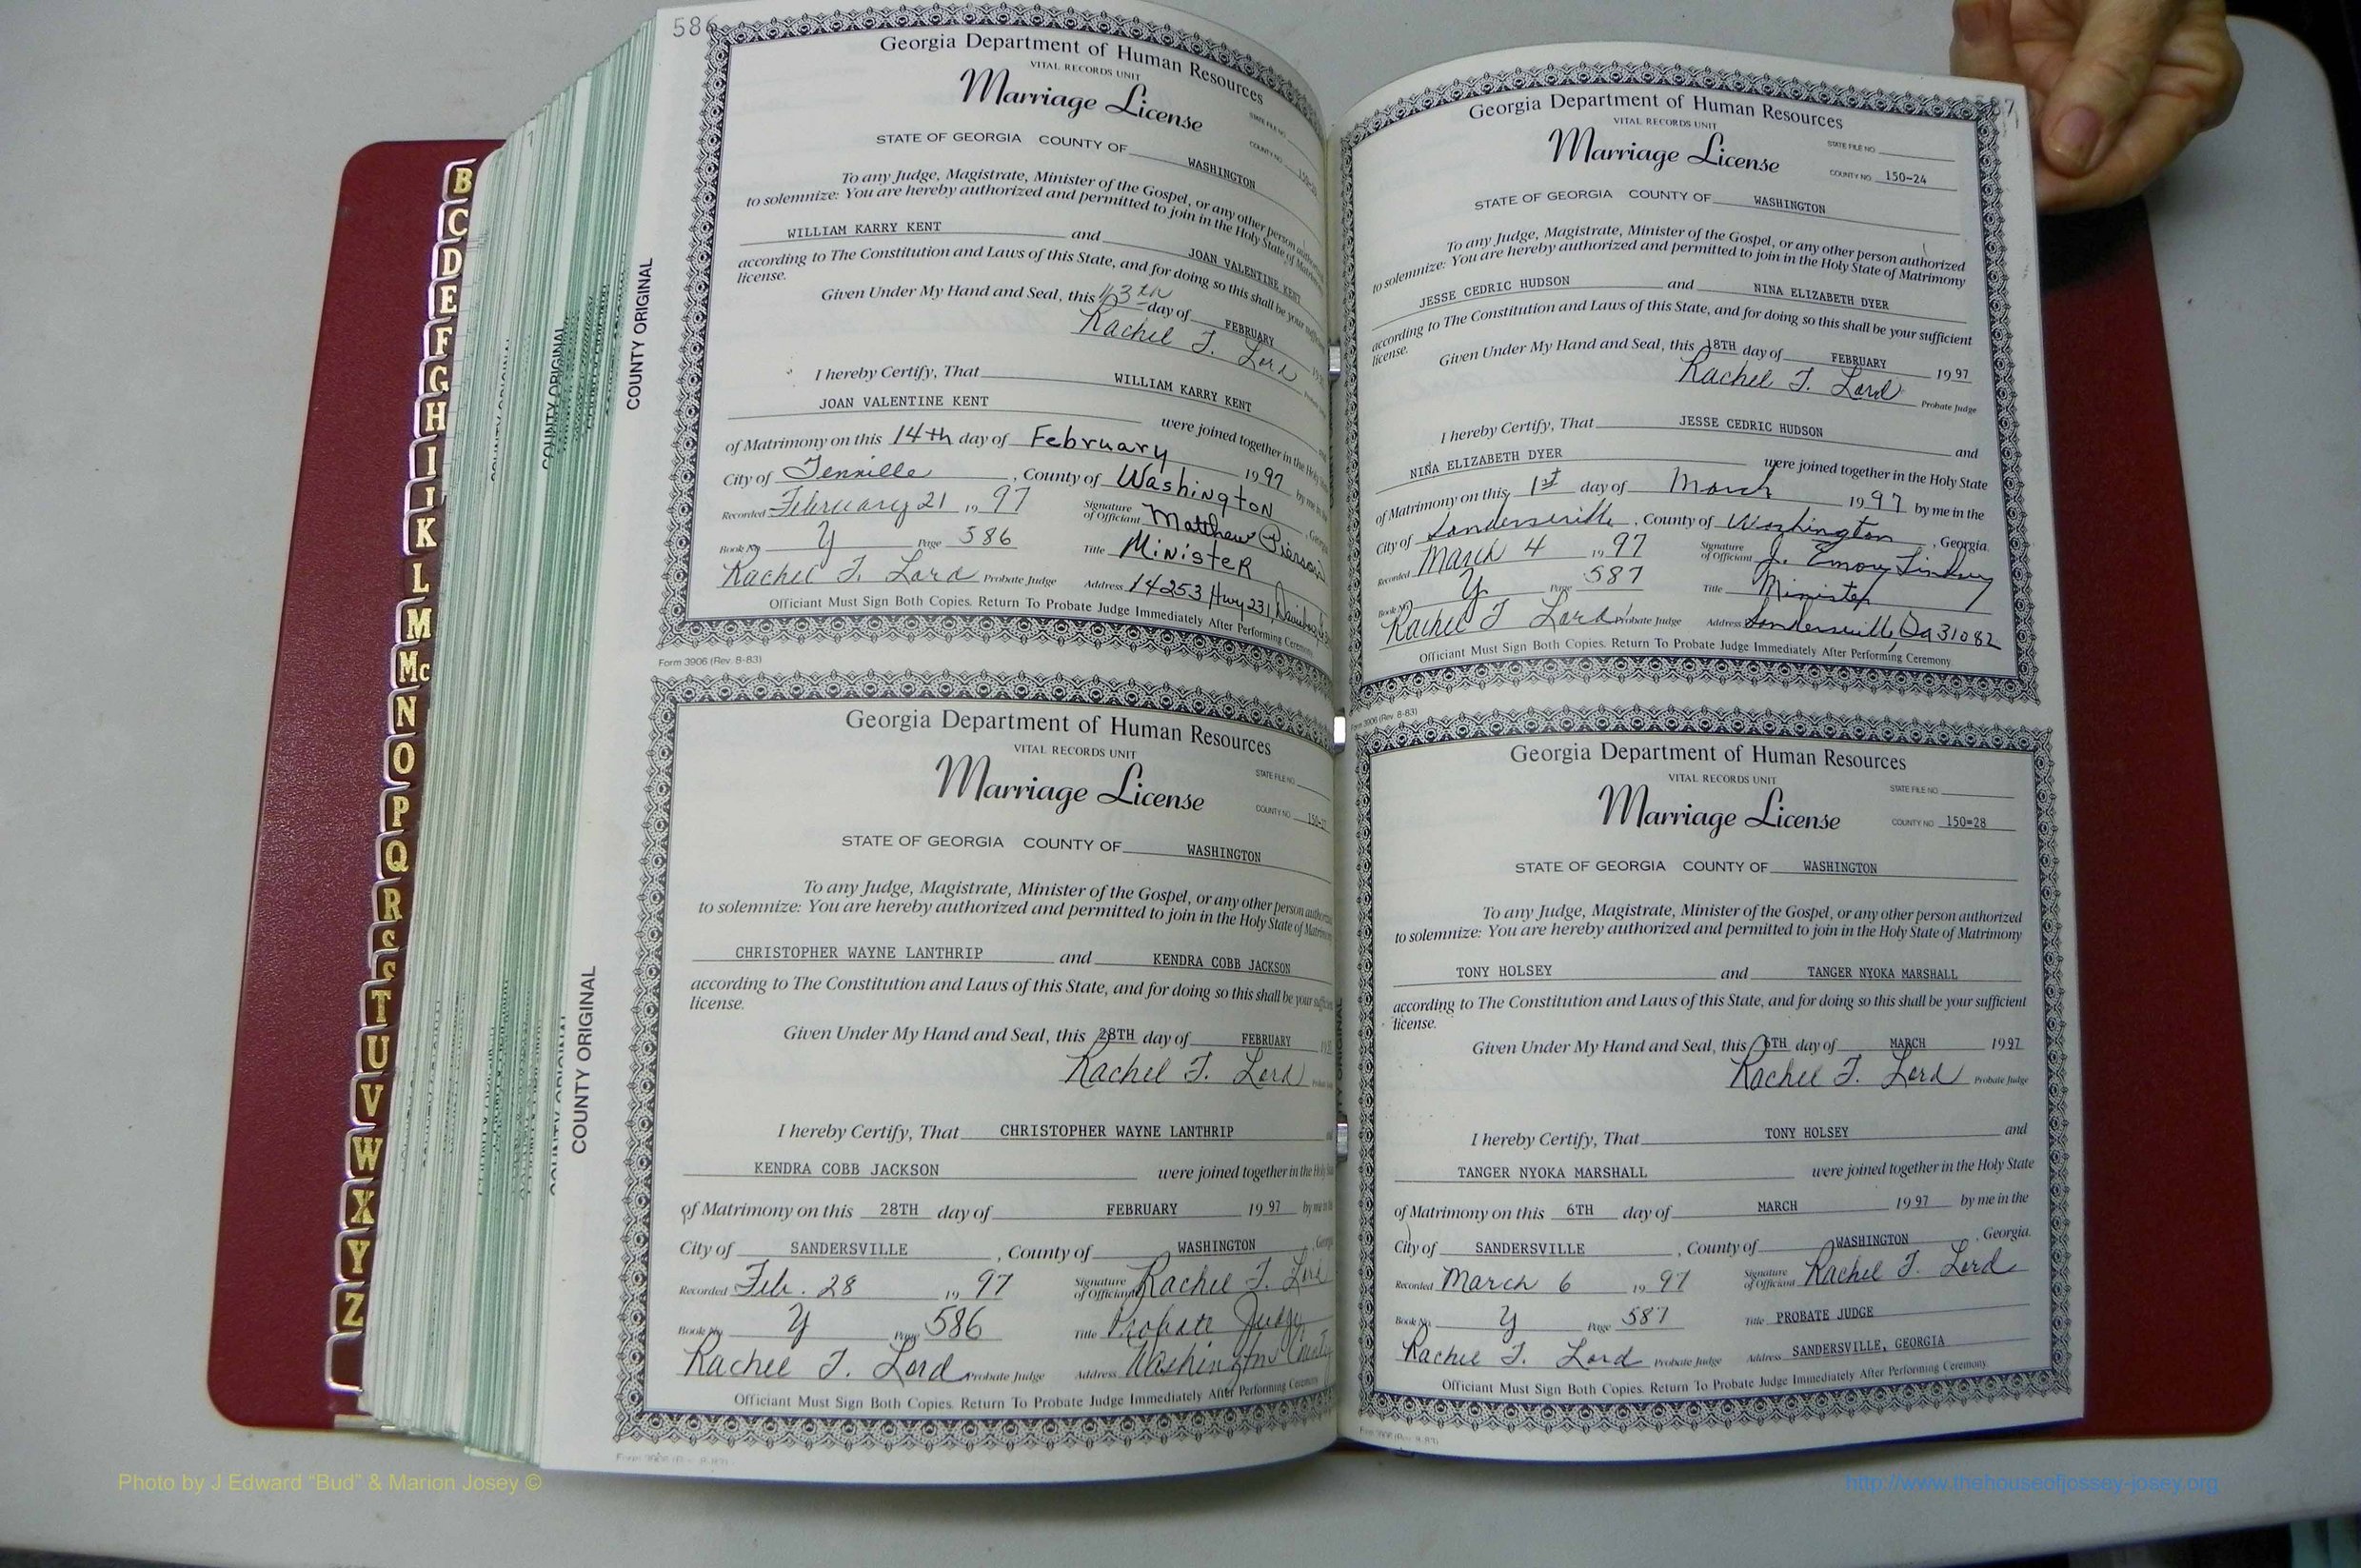 586
Georgia Department of Human Resources
VITAL RECORDS UNIT
Marriage License
STATE FILE NO.
COUNTY NO.
STATE OF GEORGIA COUNTY OF WASHINGTON
To any Judge, Magistrate, Minister of the Gospel, or any other person
to solemnize: You are hereby authorized and permitted to join in the Holy State of Matrimony
WILLIAM KARRY KENT and JOAN VALENTINE KENT
according to The Constitution and Laws of this State, and for doing so this shall be your
license.
Given Under My Hand and Seal, this 13th day of FEBRUARY
Rachel T. Lord
I hereby Certify, That WILLIAM KARRY KENT
JOAN VALENTINE KENT were joined together in the Holy
of Matrimony on this 14th day of February 1997 by me in
City of Tennille, County of Washington
Recorded February 21 1997 Signature of Officiant Matthew Pierson
Book No. Y Page 586 Title Minister
Rachel T. Lord Probate Judge Address 14253 Hwy 231,
Officiant Must Sign Both Copies. Return To Probate Judge Immediately After Performing Ceremony
Form 3906 (Rev. 8-83)
COUNTY ORIGINAL
Georgia Department of Human Resources
VITAL RECORDS UNIT
Marriage License
STATE FILE NO.
COUNTY NO.
STATE OF GEORGIA COUNTY OF WASHINGTON
To any Judge, Magistrate, Minister of the Gospel, or any other person
to solemnize: You are hereby authorized and permitted to join in the Holy State of Matrimony
CHRISTOPHER WAYNE LANTHRIP and KENDRA COBB JACKSON
according to The Constitution and Laws of this State, and for doing so this shall be your
license.
Given Under My Hand and Seal, this 28TH day of FEBRUARY
Rachel T. Lord
I hereby Certify, That CHRISTOPHER WAYNE LANTHRIP
KENDRA COBB JACKSON were joined together in the Holy
of Matrimony on this 28TH day of FEBRUARY 1997 by me in
City of SANDERSVILLE, County of WASHINGTON
Recorded Feb. 28 1997 Signature of Officiant Rachel T. Lord
Book No. Y Page 586 Title Probate Judge
Rachel T. Lord Probate Judge Address Washington County
Officiant Must Sign Both Copies. Return To Probate Judge Immediately After Performing Ceremony
COUNTY ORIGINAL
587
Georgia Department of Human Resources
VITAL RECORDS UNIT
Marriage License
STATE FILE NO.
COUNTY NO. 150-24
STATE OF GEORGIA COUNTY OF WASHINGTON
To any Judge, Magistrate, Minister of the Gospel, or any other person authorized
to solemnize: You are hereby authorized and permitted to join in the Holy State of Matrimony
JESSE CEDRIC HUDSON and NINA ELIZABETH DYER
according to The Constitution and Laws of this State, and for doing so this shall be your sufficient
license.
Given Under My Hand and Seal, this 18TH day of FEBRUARY 1997
Rachel T. Lord Probate Judge
I hereby Certify, That JESSE CEDRIC HUDSON and
NINA ELIZABETH DYER were joined together in the Holy State
of Matrimony on this 1st day of March 1997 by me in the
City of Sandersville, County of Washington, Georgia.
Recorded March 4 1997 Signature of Officiant J. Emory Lindsey
Book No. Y Page 587 Title Minister
Rachel T Lord Probate Judge Address Sandersville, Ga 31082
Officiant Must Sign Both Copies. Return To Probate Judge Immediately After Performing Ceremony.
Form 3906 (Rev. 8-83)
Georgia Department of Human Resources
VITAL RECORDS UNIT
Marriage License
STATE FILE NO.
COUNTY NO. 150-28
STATE OF GEORGIA COUNTY OF WASHINGTON
To any Judge, Magistrate, Minister of the Gospel, or any other person authorized
to solemnize: You are hereby authorized and permitted to join in the Holy State of Matrimony
TONY HOLSEY and TANGER NYOKA MARSHALL
according to The Constitution and Laws of this State, and for doing so this shall be your sufficient
license.
Given Under My Hand and Seal, this 6TH day of MARCH 1997
Rachel T. Lord Probate Judge
I hereby Certify, That TONY HOLSEY and
TANGER NYOKA MARSHALL were joined together in the Holy State
of Matrimony on this 6TH day of MARCH 1997 by me in the
City of SANDERSVILLE, County of WASHINGTON, Georgia.
Recorded March 6 1997 Signature of Officiant Rachel T. Lord
Book No. Y Page 587 Title PROBATE JUDGE
Rachel T. Lord Probate Judge Address SANDERSVILLE, GEORGIA
Officiant Must Sign Both Copies. Return To Probate Judge Immediately After Performing Ceremony.
B
C
D
E
F
G
H
I
K
L
M
Mc
N
O
P
Q
R
T
U
V
W
X
Y
Z
Photo by J Edward “Bud” & Marion Josey ©
http://www.thehouseofjossey-josey.org